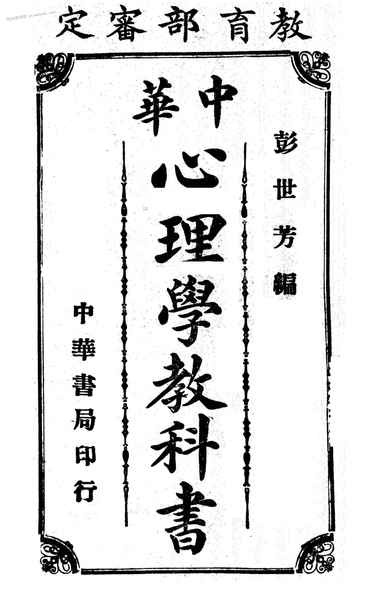 教育部審定
彭世芳編
中華
心理學教科書
中華書局印行